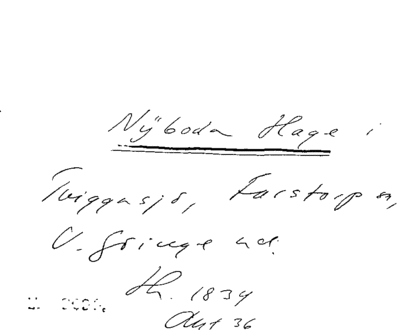 Nÿboda Hage i
Tviggasjö, Farstorp sn,
V. Göinge hd.
Th. 1834
Akt 36